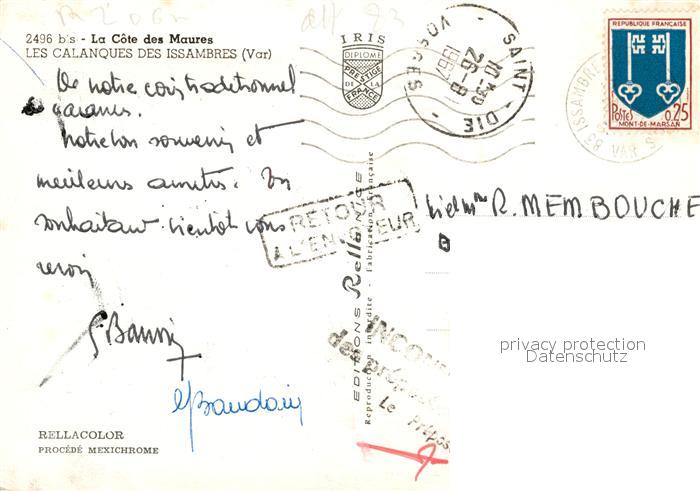 2496 bis - La Côte des Maures
LES CALANQUES DES ISSAMBRES (Var)
De notre coin traditionnel
vacances.
notre bon souvenir et
meilleures amitiés. En
souhaitant bientôt vous
revoir
RELLACOLOR
PROCÉDÉ MEXICHROME
IRIS
DIPLOME
PRESTIGE
DE LA
FRANCE
SAINT-DIE
10H30
26-8
1967
VOSGES
RETOUR
A L'ENVOYEUR
EDITIONS Rellonice
Reproduction interdite - Fabrication Française
INCONN
des prépos
Le Prépos
REPUBLIQUE FRANÇAISE
POSTES 0,25
MONT-DE-MARSAN
83 ISSAMBRE
VAR
R. MEMBOUCHE
privacy protection
Datenschutz